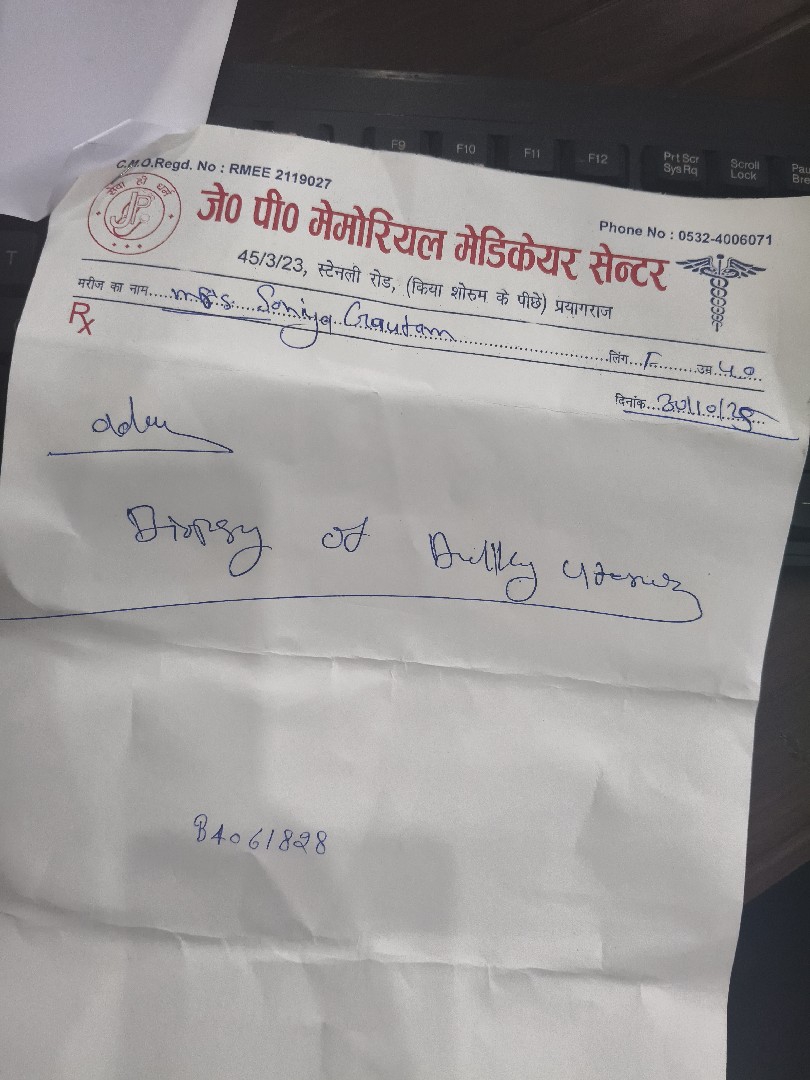 F9 F10 F11 F12 Prt Scr Sys Rq Scroll Lock Pau Bre
T
C.M.O.Regd. No : RMEE 2119027
Phone No : 0532-4006071
सेवा ही धर्म
JP
जे० पी० मेमोरियल मेडिकेयर सेन्टर
45/3/23, स्टेनली रोड, (किया शोरुम के पीछे) प्रयागराज
मरीज का नाम.....Mrs. Soniya Gautam.....लिंग...F.......उम्र.40
Rx
दिनांक...30/10/25
adv
Biopsy of Bulky uterus
84061828